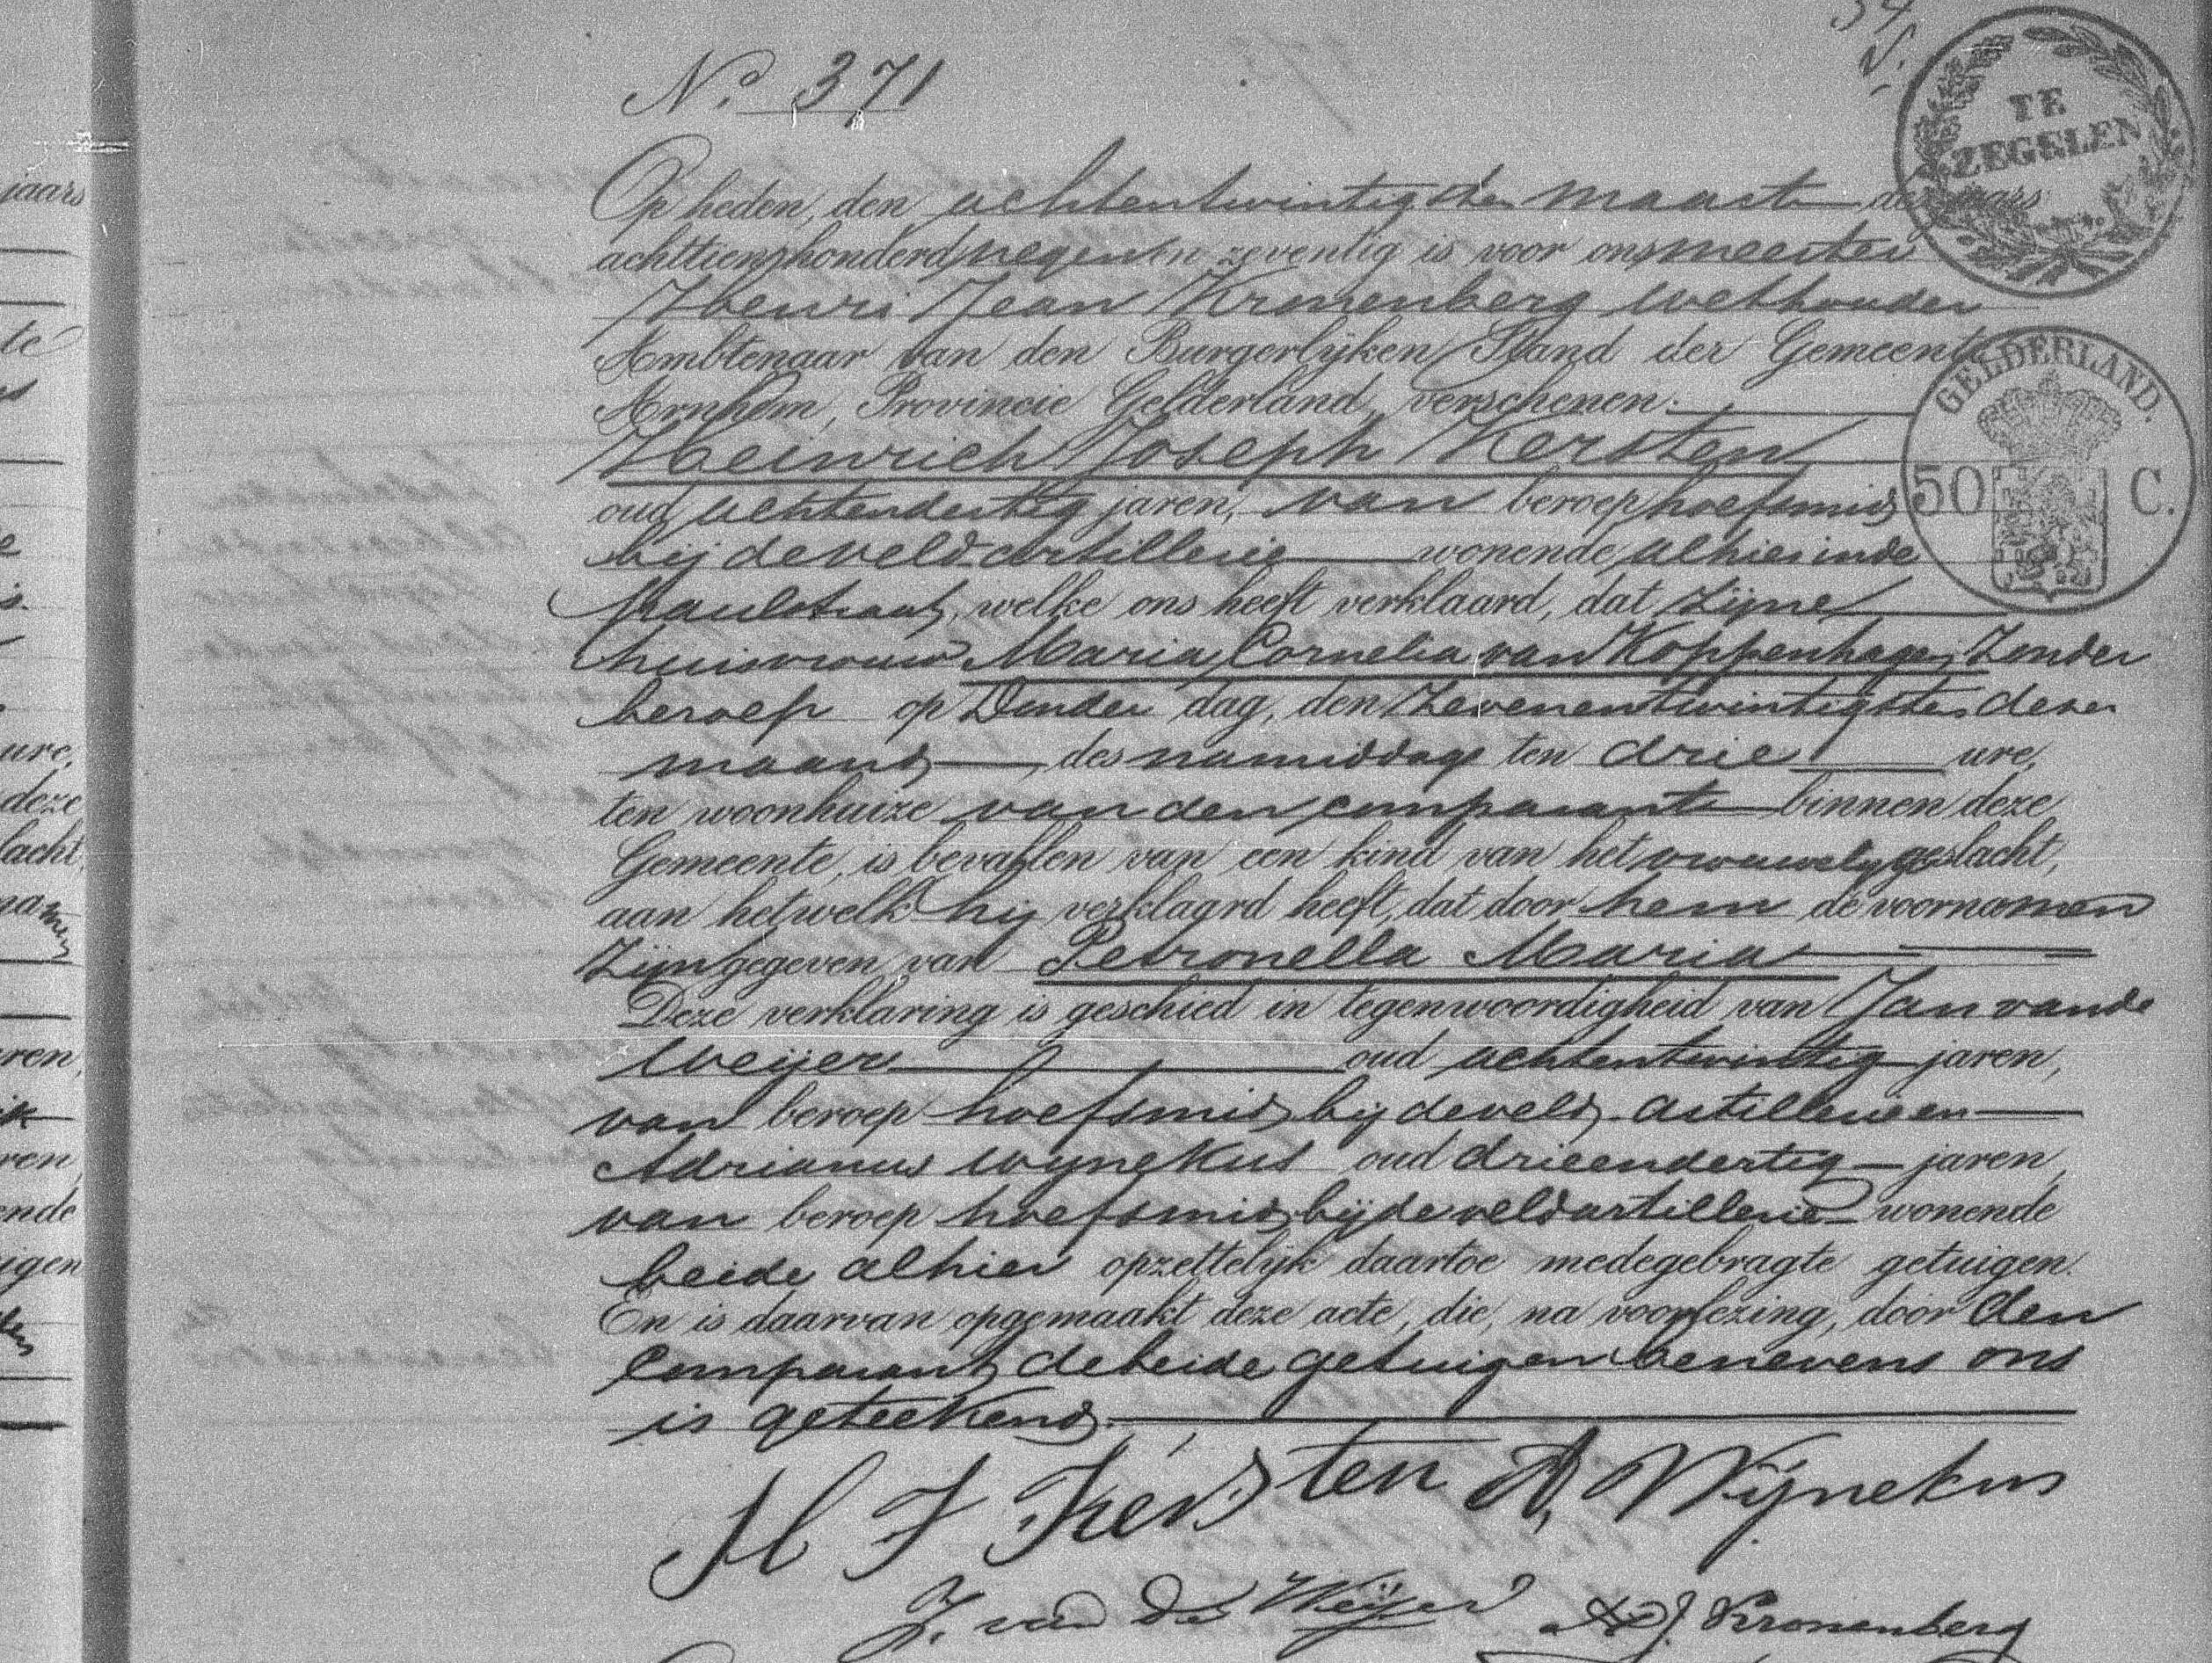 No. 371
TE
ZEGELEN
Op heden, den achtentwintigsten maart des jaars
achttienhonderd negen en zeventig is voor ons meester
Henri Jean Kronenberg wethouder
Ambtenaar van den Burgerlijken Stand der Gemeente
Arnhem, Provincie Gelderland, verschenen:
GELDERLAND.
50 C.
Heinrich Joseph Kersten
oud achtendertig jaren, van beroep hoefsmid
bij de veld artillerie wonende alhier in de
Paulstraat, welke ons heeft verklaard, dat zijne
huisvrouw Maria Cornelia van Koppenhagen, zonder
beroep op Donder dag, den zevenentwintigsten dezer
maand, des namiddags ten drie ure,
ten woonhuize van den comparant binnen deze
Gemeente, is bevallen van een kind van het vrouwelijk geslacht,
aan hetwelk hij verklaard heeft, dat door hem de voornamen
zijn gegeven van Petronella Maria
Deze verklaring is geschied in tegenwoordigheid van Jan van de
Weijer oud achtentwintig jaren,
van beroep hoefsmid bij de veld artillerie en
Adrianus Wijnekus oud drieendertig jaren,
van beroep hoefsmid bij de veldartillerie wonende
beide alhier opzettelijk daartoe medegebragte getuigen.
En is daarvan opgemaakt deze acte, die, na voorlezing, door den
comparant, de beide getuigen benevens ons
is geteekend.
H J Kersten A. Wijnekus
J. van de Weijer H J. Kronenberg
jaars
te
ure,
deze
lacht,
namen
ren,
ik
ren,
ende
igen